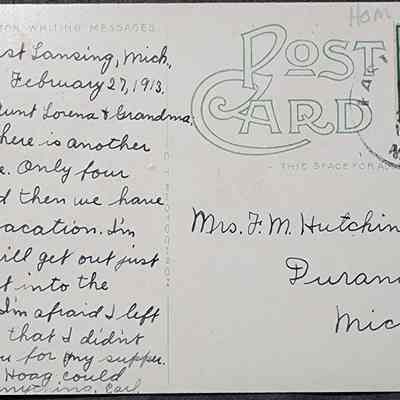 TON WRITING MESSAGES
st Lansing, Mich,
February 27, 1913.
Aunt Lorena & Grandma,
here is another
e. Only four
d then we have
vacation. I'm
ill get out just
t into the
I'm afraid I left
that I didn't
u for my supper.
Hoag could
Carl
HOM
POST
CARD
THIS SPACE FOR A
Mrs. F. M. Hutchin
Duran
Mic